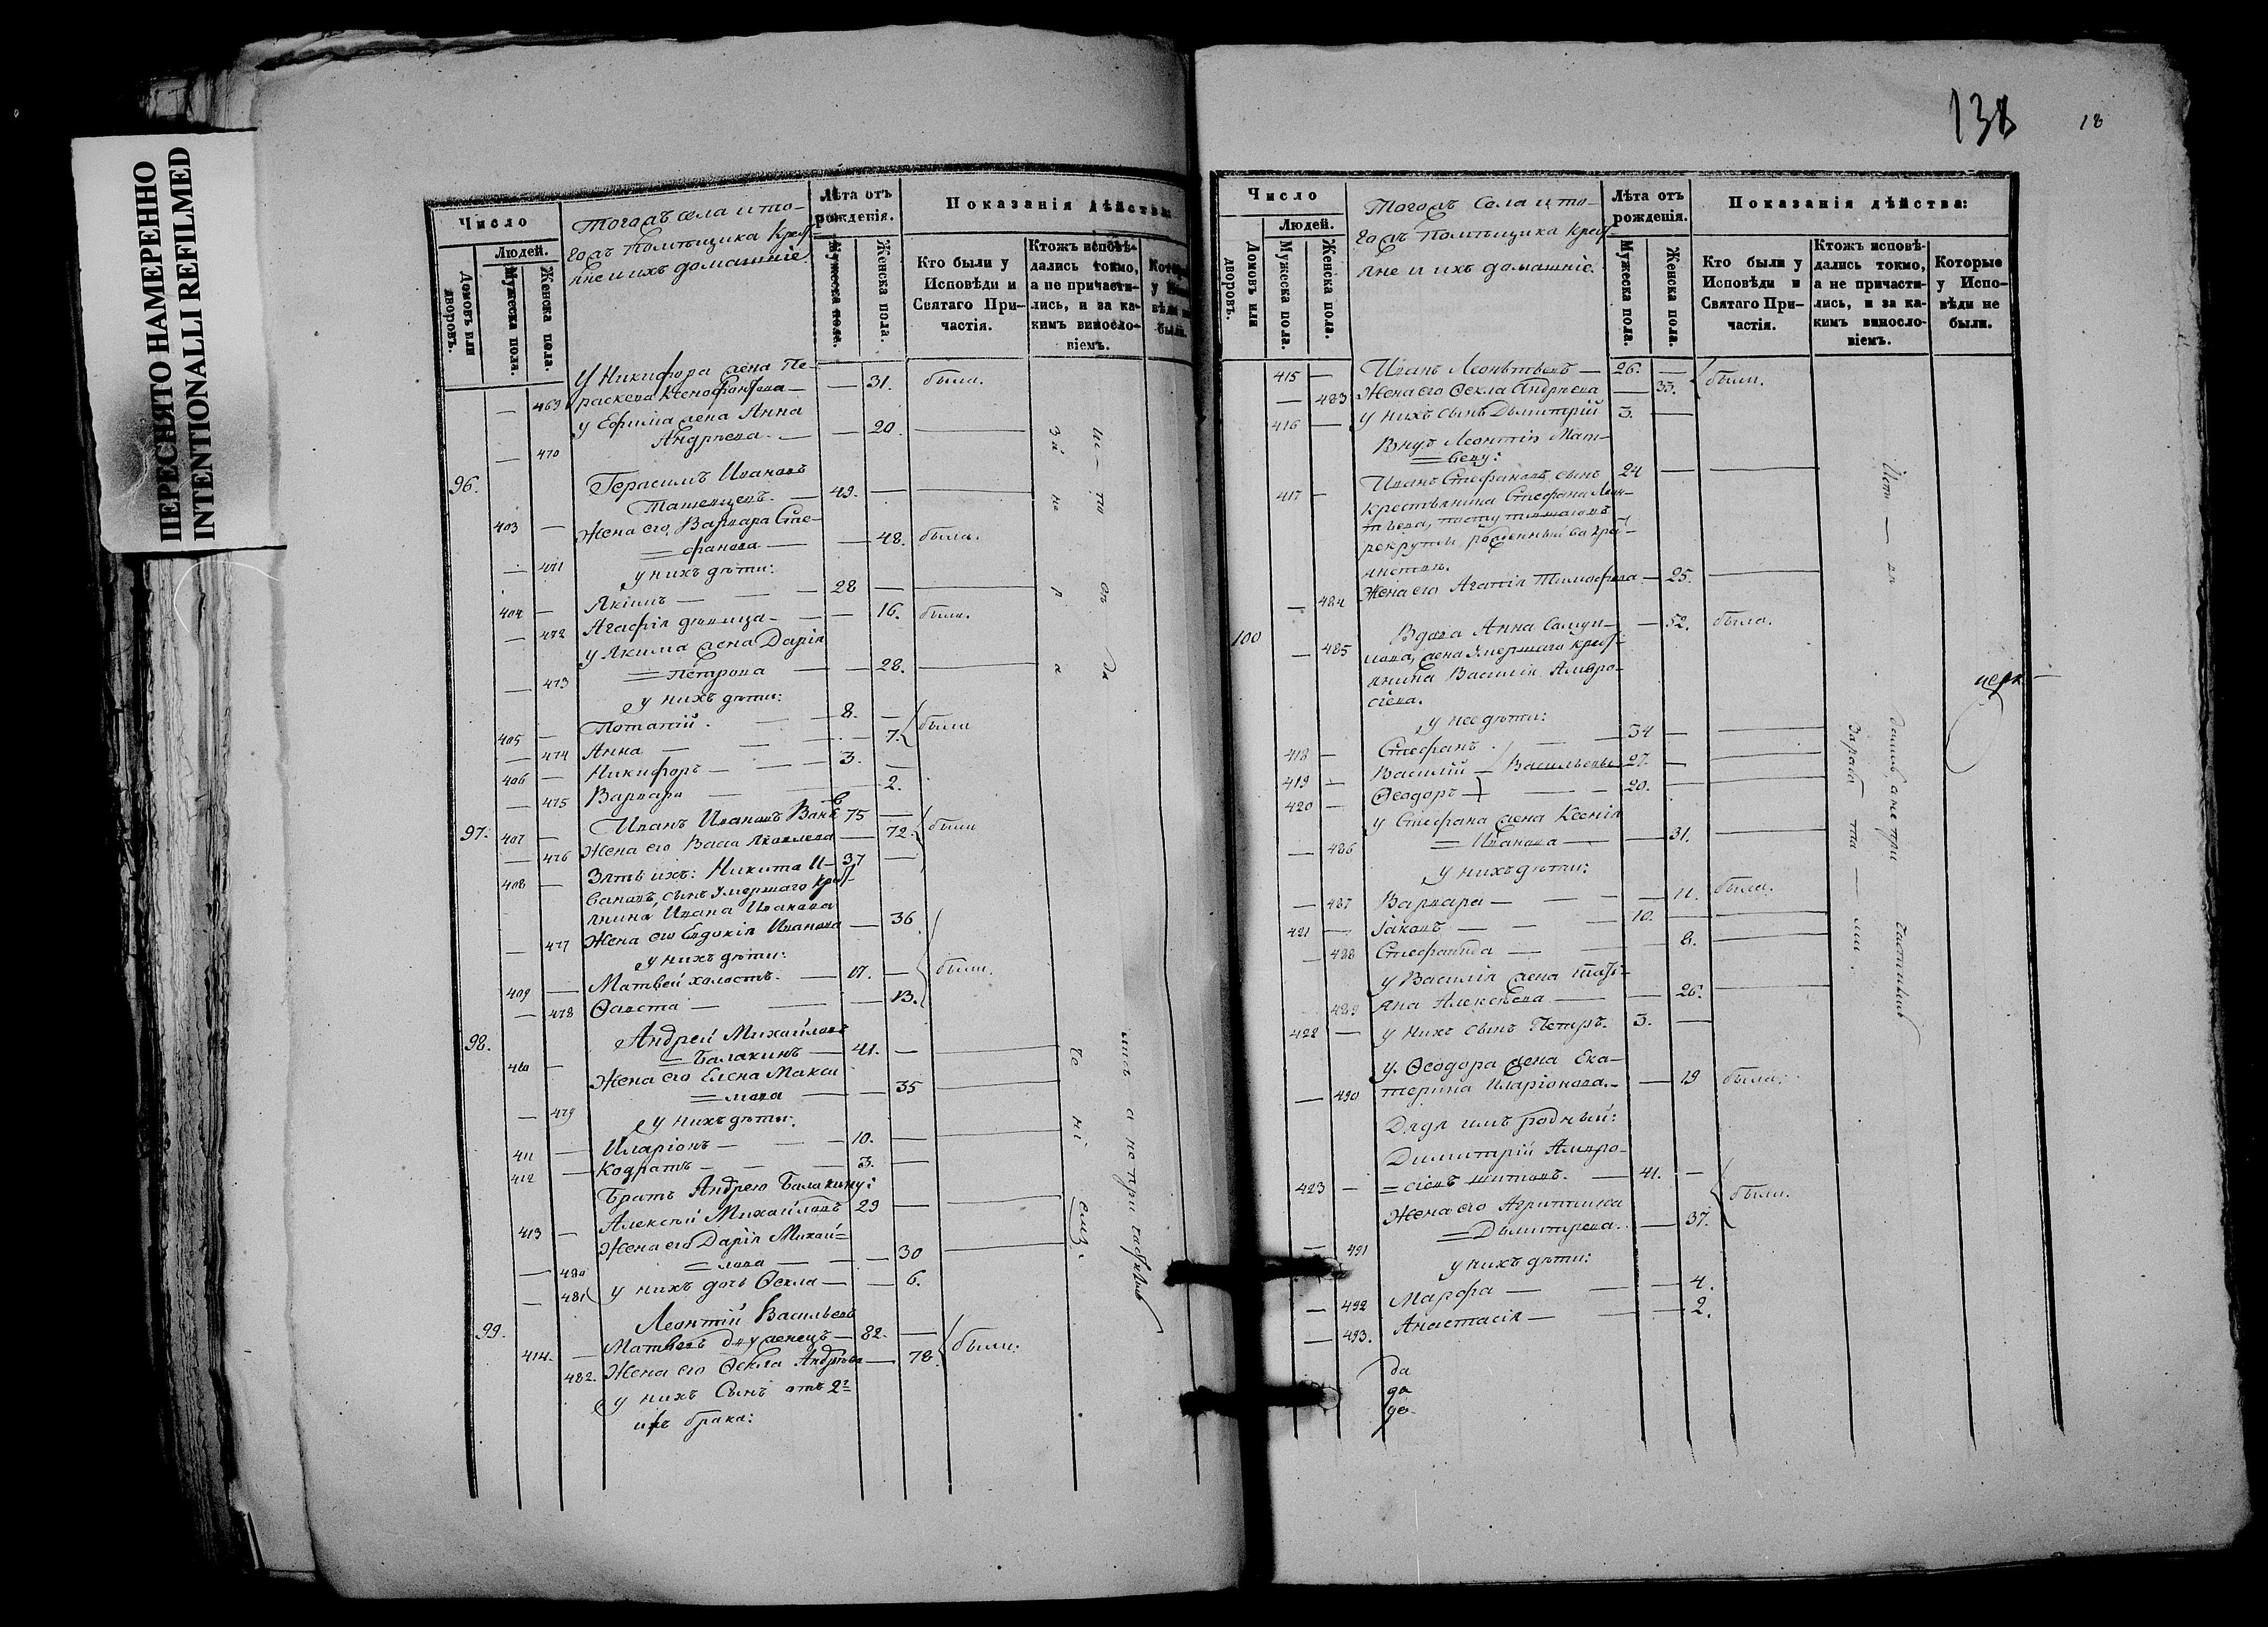 ПЕРЕСНЯТО НАМЕРЕННО
INTENTIONALLI REFILMED
Число
Людей.
Домовъ или дворовъ.
Мужеска пола.
Женска пола.
Тогожъ села и то-
гожъ Помѣщика крест-
яне и ихъ домашніе
Лѣта отъ рожденія.
Мужеска пола.
Женска пола.
Показанія дѣйства:
Кто были у Исповѣди и Святаго При-частія.
Ктожъ исповѣ-дались токмо, а не причасти-лись, и за ка-кимъ винносло-віемъ.
У Никифора жена Пе-
469 раскева Ксенофонтова — — 31. была.
у Ефима жена Анна
— 470 Андреева. — — 20.
96. Герасимъ Ивановъ
403 — 49.
Жена его Варвара Сте-
— 471 =фанова — — 48. была.
у нихъ дѣти:
404 — Якимъ — — 28 —
— 472 Агафія дѣвица — — 16. была.
у Якима жена Дарія
— 473 =Петрова — — 28.
у нихъ дѣти:
405 — Потапій. — 8. —
— 474 Анна — — 7. были
406 — Никифоръ — — 3. —
— 475 Варвара — — 2.
97. 407 — Иванъ Ивановъ 75 —
— 476 Жена его Васса Яковлева — 72. были
408 — Зять ихъ: Никита И- 37 —
вановъ, сынъ умершаго крест-
янина Ивана Иванова
— 477 Жена его Евдокія Иванова — 36.
у нихъ дѣти:
409 — Матвей холостъ. — 17. — были.
— 478 Ѳавста — — 13.
98. Андрей Михайловъ
410 — =Балакинъ — 41. —
Жена его Елена Макси
— 479 =мова — — 35
у нихъ дѣти:
411 — Иларіонъ — — 10. —
412 — Кодратъ — — 3. —
Братъ Андрею Балакину:
413 — Алексѣй Михайловъ 29 —
Жена его Дарія Михай=
— 480 =лова — — 30
— 481 у нихъ дочь Ѳекла — — 6.
99. Леонтій Васильевъ
414. — Матвеевъ двуженецъ — 82. —
482. Жена его Ѳекла Андреева — 78. были:
у нихъ сынъ отъ 2го
ихъ брака:
138
18
Число
Людей.
Домовъ или дворовъ.
Мужеска пола.
Женска пола.
Тогожъ Села и то-
гожъ Помѣщика крест-
яне и ихъ домашніе.
Лѣта отъ рожденія.
Мужеска пола.
Женска пола.
Показанія дѣйства:
Кто были у Исповѣди и Святаго При-частія.
Ктожъ исповѣ-дались токмо, а не причасти-лись, и за ка-кимъ винносло-віемъ.
Которые у Испо-вѣди не были.
415 — Иванъ Леонтьевъ — 26. —
— 483 Жена его Ѳекла Андреева — 33. были.
416 — у нихъ сынъ Дымитрій 3. —
Внукъ Леонтія Мат-
=вееву:
417 — Иванъ Стефановъ сынъ 24 —
крестьянина Стефана Леон-
тьева, поступившаго въ
рекруты, рожденный въ кре-
стьянствѣ.
— 484 Жена его Агапія Тимофеева — 25.
100 — 485 Вдова Анна Самуи- — 52. была.
лова, жена умершаго крест-
янина Василія Амвро-
сіева.
у нее дѣти:
418 — Стефанъ. — 34 —
419 — Василій — Васильевы 27. —
420 — Ѳеодоръ — 20. —
у Стефана жена Ксенія
— 486 =Иванова — — 31.
у нихъ дѣти:
— 487 Варвара — — 11. была.
421 — Іаковъ — — 10. —
— 488 Стефанида — — 8.
у Василія жена Тать-
489 яна Алексѣева — — 26.
422 — у нихъ сынъ Петръ. 3. —
у Ѳеодора жена Ека-
— 490 терина Иларіонова. — 19 была.
Дядя имъ родный:
Димитрій Амвро-
423 — =сіевъ Титовъ. — 41. —
Жена его Агриппина
— 491 =Дымитрева. — 37. были.
у нихъ дѣти:
— 492 Марфа — — 4.
— 493. Анастасія — — 2.
да
да
да